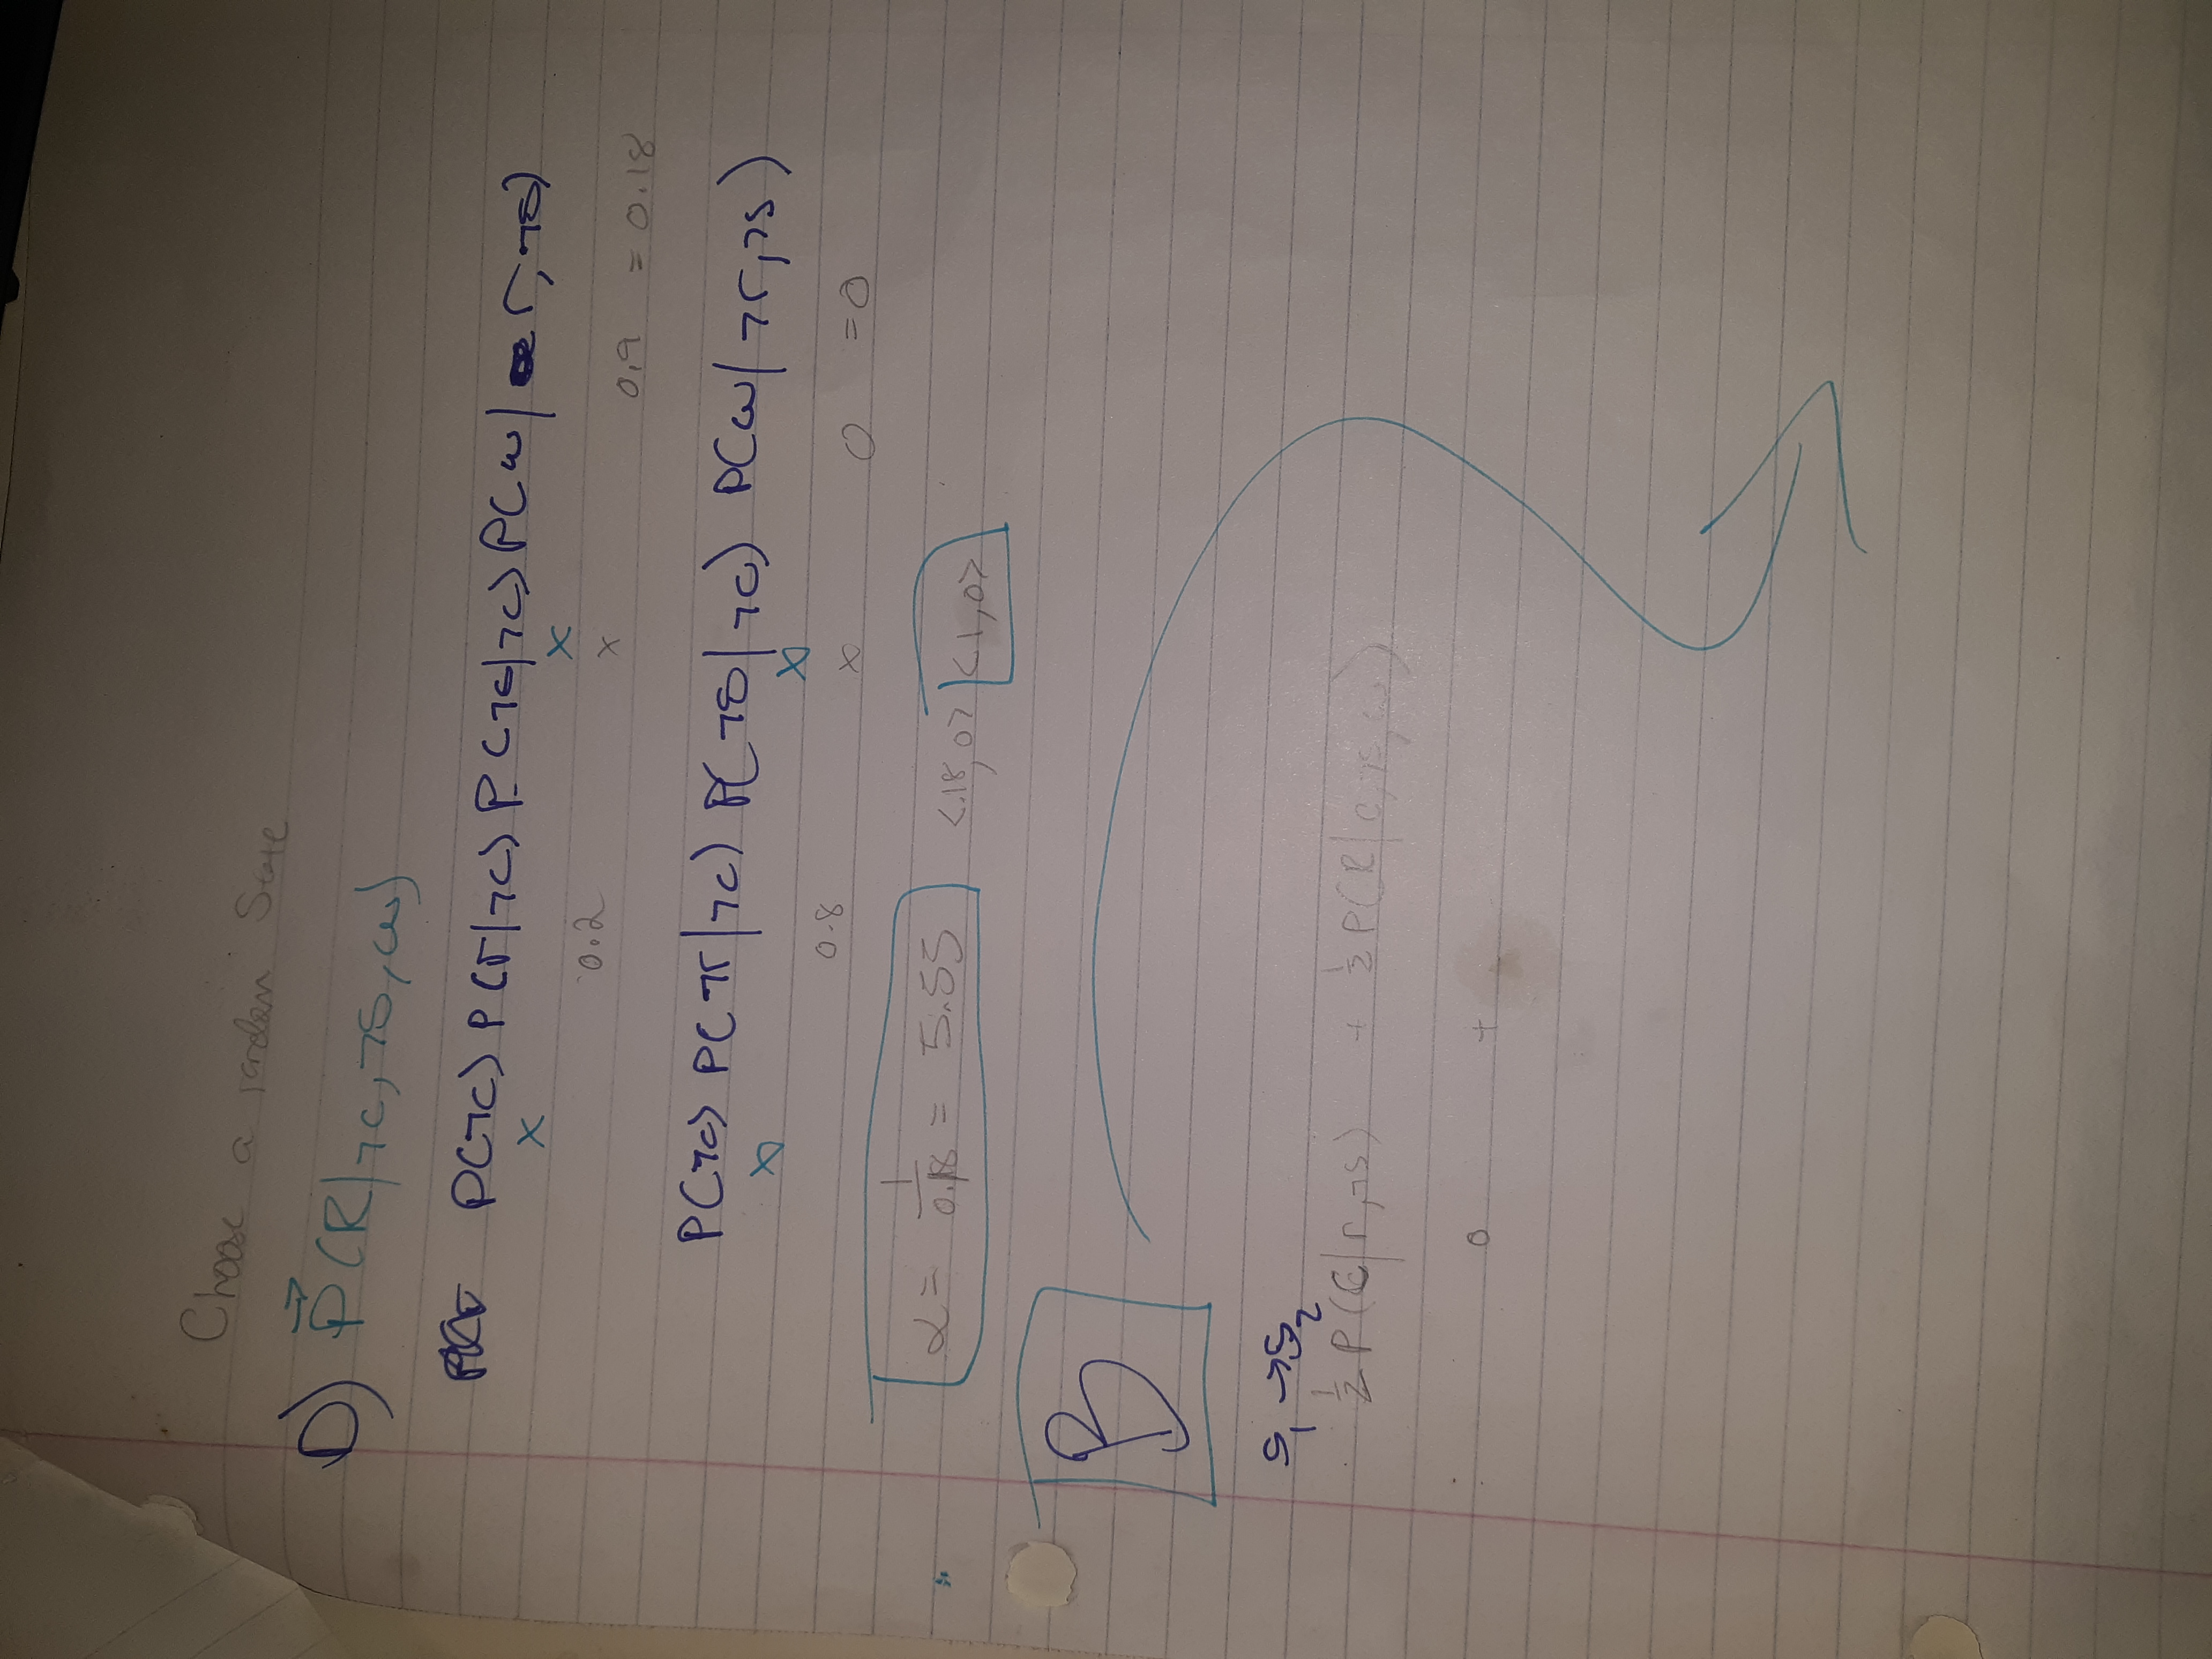 Choose a random State
D) P(R|¬c,¬s,w)
P(¬c) P(r|¬c) P(¬s|¬c) P(w| r,¬s)
x x
0.2 x 0.9 = 0.18
P(¬c) P(¬r|¬c) P(¬s|¬c) P(w|¬r,¬s)
x x
0.8 x 0 =0
α = 1/0.18 = 5.55 <.18,0> <1,0>
B
S₁ →S₂
½ P(C|r,¬s) + ½ P(R|c,¬s,w)
0 +